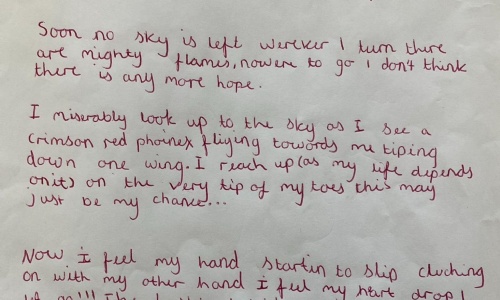 Soon no sky is left werever I turn there
are mighty flames, nowere to go I don't think
there is any more hope.
I miserably look up to the sky as I see a
crimson red phoinex fliying towords me tiping
down one wing. I reach up (as my life depends
onit) on the very tip of my toes this may
just be my chance...
Now I feel my hand startin to slip cluching
on with my other hand I feel my hart drop!